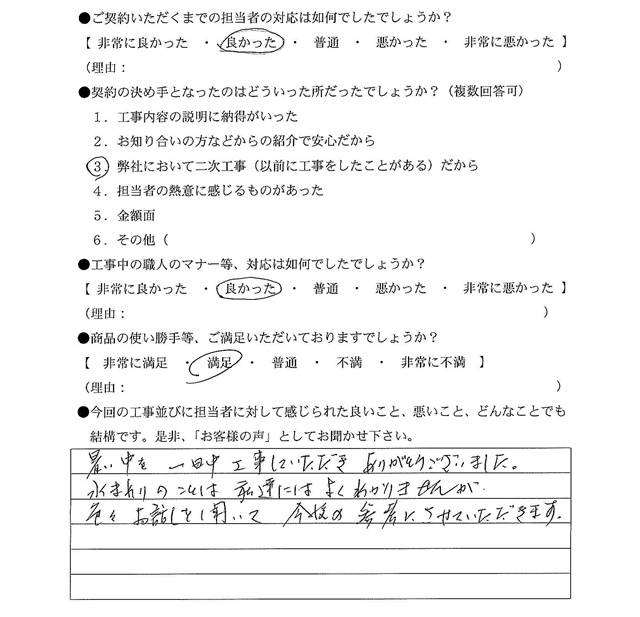 ●ご契約いただくまでの担当者の対応は如何でしたでしょうか？
【 非常に良かった ・ 良かった ・ 普通 ・ 悪かった ・ 非常に悪かった 】
（理由： ）
●契約の決め手となったのはどういった所だったでしょうか？（複数回答可）
１．工事内容の説明に納得がいった
２．お知り合いの方などからの紹介で安心だから
３．弊社において二次工事（以前に工事をしたことがある）だから
４．担当者の熱意に感じるものがあった
５．金額面
６．その他（ ）
●工事中の職人のマナー等、対応は如何でしたでしょうか？
【 非常に良かった ・ 良かった ・ 普通 ・ 悪かった ・ 非常に悪かった 】
（理由： ）
●商品の使い勝手等、ご満足いただいておりますでしょうか？
【 非常に満足 ・ 満足 ・ 普通 ・ 不満 ・ 非常に不満 】
（理由： ）
●今回の工事並びに担当者に対して感じられた良いこと、悪いこと、どんなことでも
結構です。是非、「お客様の声」としてお聞かせ下さい。
暑い中を 一日中 工事していただき ありがとうございました。
水まわりのことは 私達には よくわかりませんが
色々 お話しを聞いて 今後の 参考にさせていただきます。